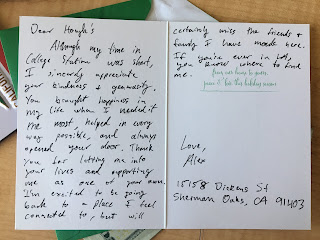 Dear Hough's
Although my time in
College Station was short,
I sincerely appreciate
your kindness & generosity.
You brought happiness in
my life when I needed it
the most, helped in every
way possible, and always
opened your door. Thank
you for letting me into
your lives and supporting
me as one of your own.
I'm excited to be going
back to a place I feel
connected to, but will
certainly miss the friends &
family I have made here.
If you're ever in LA,
you know where to find
me.
from our home to yours,
peace & joy this holiday season
Love,
Alex
15158 Dickens St
Sherman Oaks, CA 91403